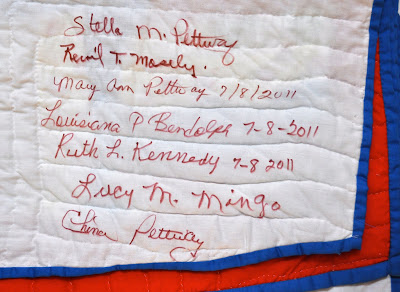 Stella M. Pettway
Revil T. Mosely.
Mary Ann Pettway 7/8/2011
Louisiana P Bendolph 7-8-2011
Ruth L. Kennedy 7-8 2011
Lucy M. Mingo
China Pettway